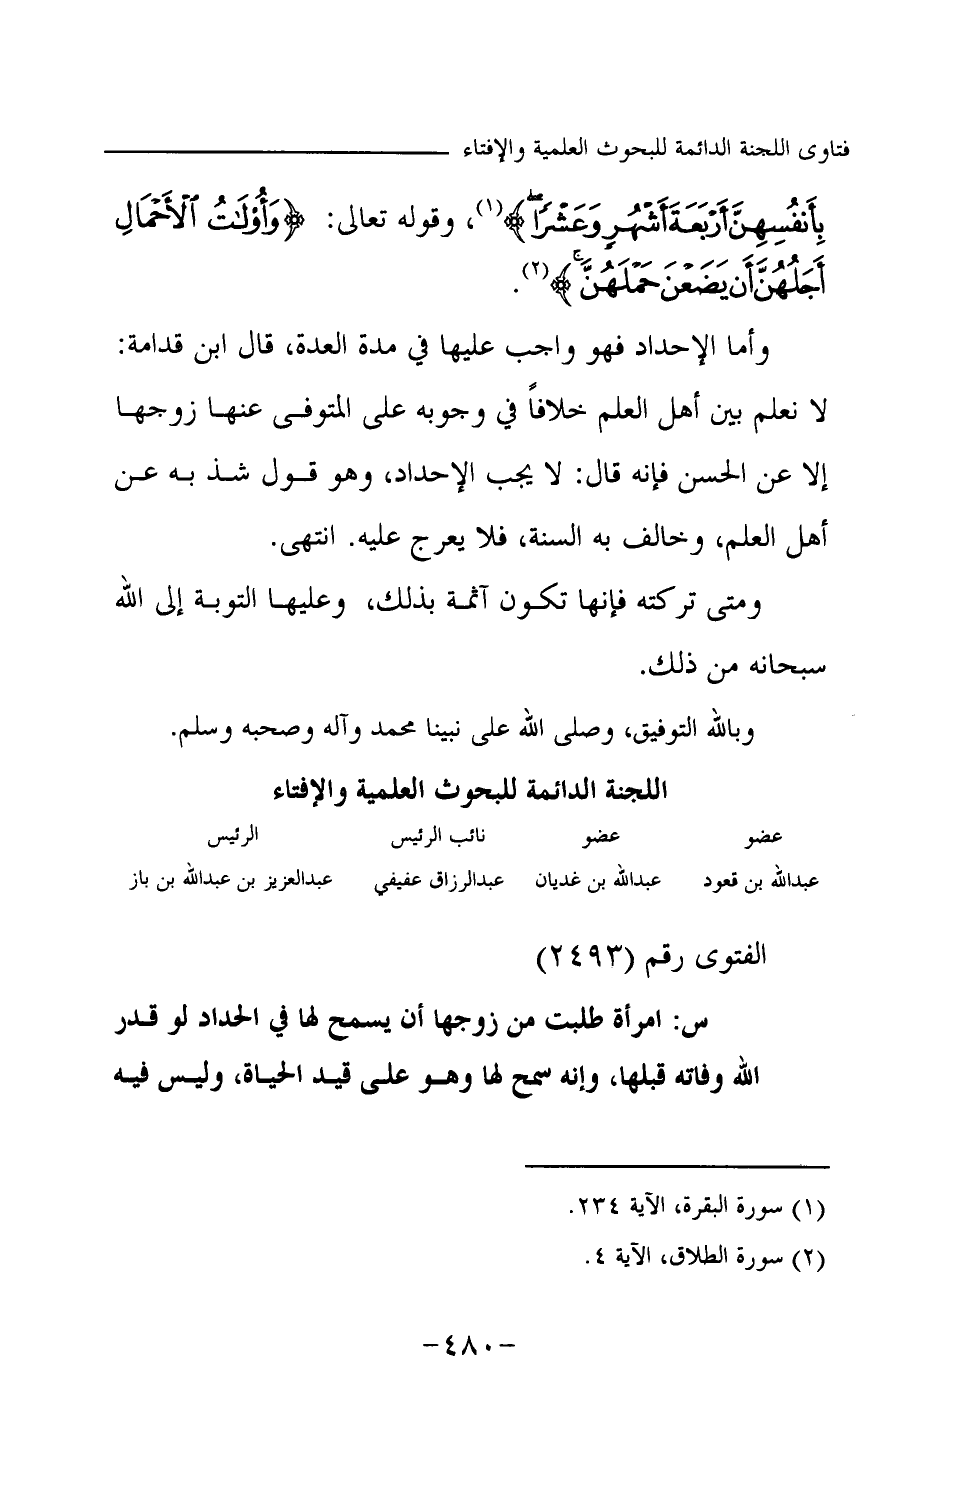 فتاوى اللجنة الدائمة للبحوث العلمية والإفتاء
بِأَنفُسِهِنَّ أَرۡبَعَةَ أَشۡهُرٖ وَعَشۡرٗاۖ﴾(١)، وقوله تعالى: ﴿وَأُوْلَٰتُ ٱلۡأَحۡمَالِ
أَجَلُهُنَّ أَن يَضَعۡنَ حَمۡلَهُنَّۚ﴾(٢).
وأما الإحداد فهو واجب عليها في مدة العدة، قال ابن قدامة:
لا نعلم بين أهل العلم خلافاً في وجوبه على المتوفى عنها زوجها
إلا عن الحسن فإنه قال: لا يجب الإحداد، وهو قول شذ به عن
أهل العلم، وخالف به السنة، فلا يعرج عليه. انتهى.
ومتى تركته فإنها تكون آثمة بذلك، وعليها التوبة إلى الله
سبحانه من ذلك.
وبالله التوفيق، وصلى الله على نبينا محمد وآله وصحبه وسلم.
اللجنة الدائمة للبحوث العلمية والإفتاء
عضو عضو نائب الرئيس الرئيس
عبدالله بن قعود عبدالله بن غديان عبدالرزاق عفيفي عبدالعزيز بن عبدالله بن باز
الفتوى رقم (٢٤٩٣)
س: امرأة طلبت من زوجها أن يسمح لها في الحداد لو قدر
الله وفاته قبلها، وإنه سمح لها وهو على قيد الحياة، وليس فيه
(١) سورة البقرة، الآية ٢٣٤.
(٢) سورة الطلاق، الآية ٤.
-٤٨٠-